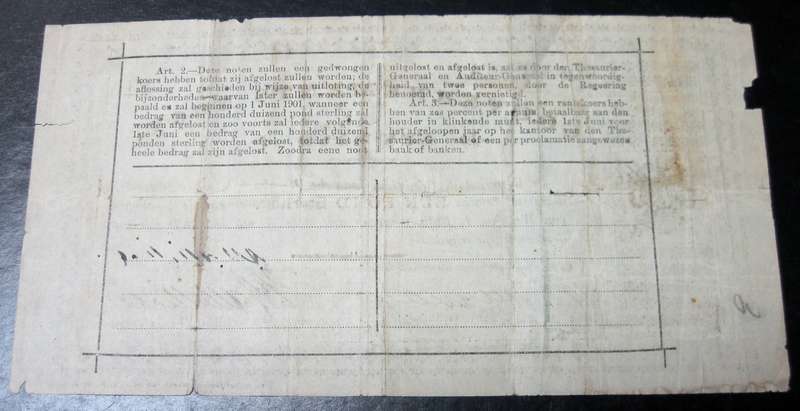 Art. 2.—Deze noten zullen een gedwongen
koers hebben totdat zij afgelost zullen worden; de
aflossing zal geschieden bij wijze van uitloting, de
bijzonderheden waarvan later zullen worden be-
paald es zal beginnen op 1 Juni 1901, wanneer een
bedrag van een honderd duizend pond sterling zal
worden afgelost en zoo voorts zal iedere volgende
1ste Juni een bedrag van een honderd duizend
ponden sterling worden afgelost, totdat het ge-
heele bedrag zal zijn afgelost. Zoodra eene noot
uitgeloot en afgelost is, zal ze door den Thesaurier-
Generaal en Auditeur-Generaal in tegenwoordig-
heid van twee personen, door de Regeering
benoemd, worden vernietigd.
Art. 3.—Deze noten zullen een rentekoers heb-
ben van zes percent per annum betaalbaar aan den
houder in klinkende munt, iedere 1ste Juni voor
het afgeloopen jaar op het kantoor van den The-
saurier-Generaal of een per proclamatie aangewezen
bank of banken.